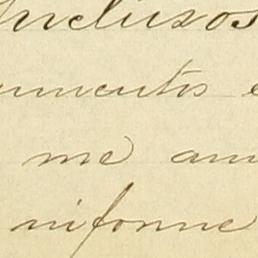 Inclusos
umentos e
me am
informe